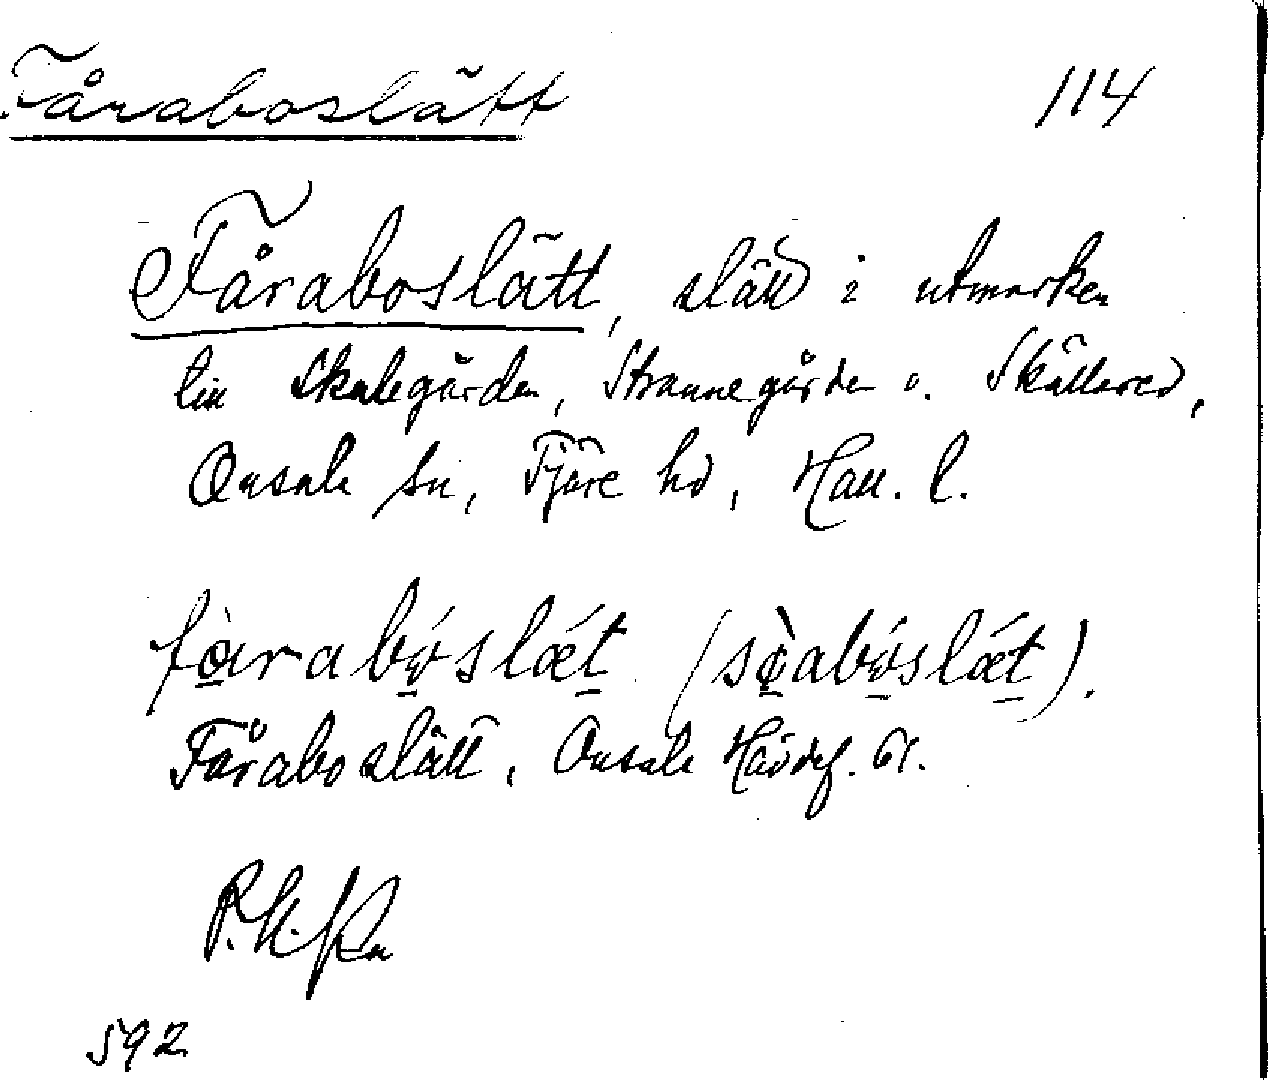 Fåraboslätt 114
Fåraboslätt, slätt i utmarken
till Skalegården, Strannegården o. Skällared,
Onsala sn, Fjäre hd, Hall. l.
fàrabóslǽt (sòabóslǽt).
Fåraboslätt, Onsala Hävdef. 61.
P. H.
592